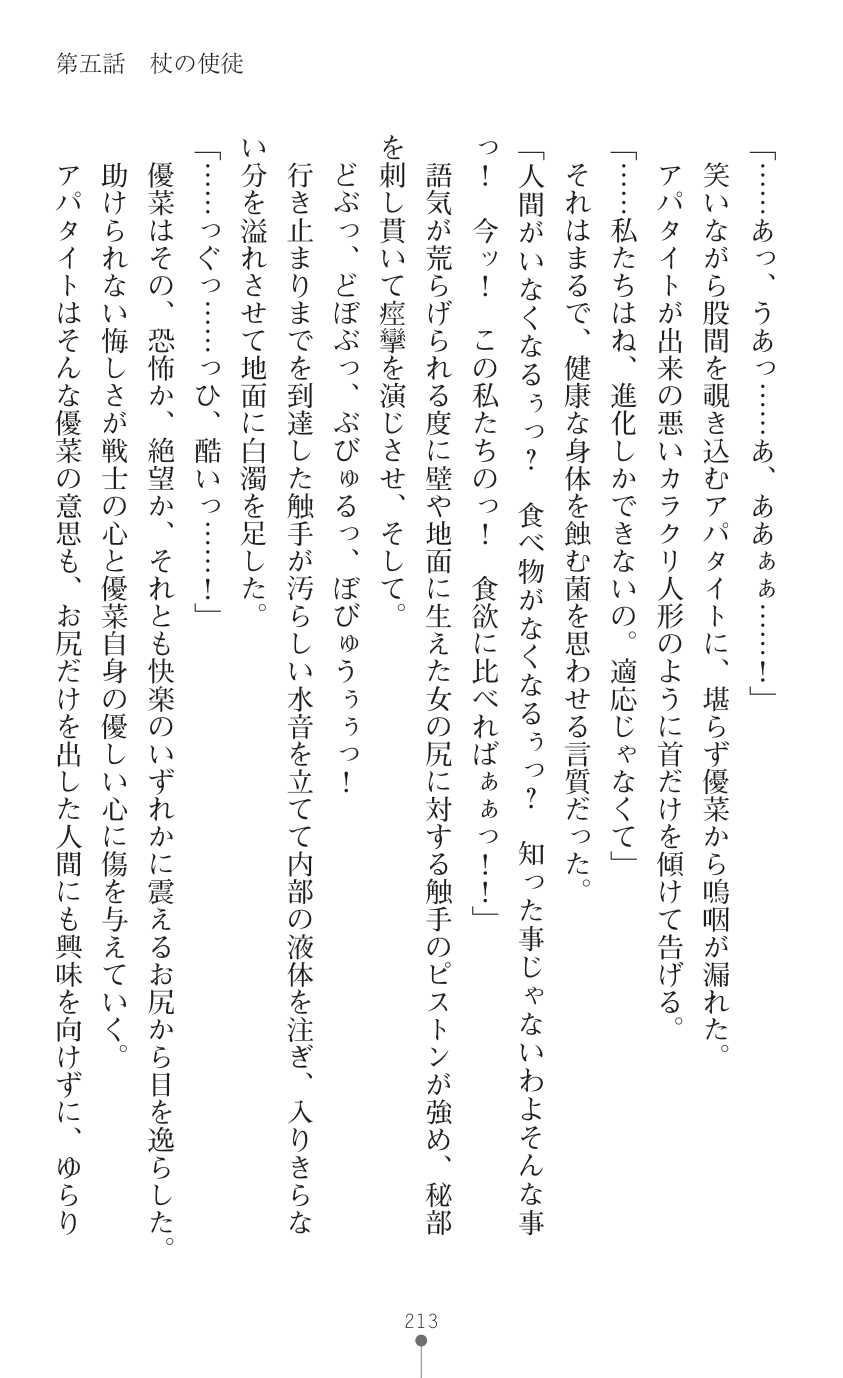 第五話　杖の使徒
「……あっ、うあっ……あ、ああぁぁ……！」
笑いながら股間を覗き込むアパタイトに、堪らず優菜から嗚咽が漏れた。
アパタイトが出来の悪いカラクリ人形のように首だけを傾けて告げる。
「……私たちはね、進化しかできないの。適応じゃなくて」
それはまるで、健康な身体を蝕む菌を思わせる言質だった。
「人間がいなくなるぅっ？　食べ物がなくなるぅっ？　知った事じゃないわよそんな事
っ！　今ッ！　この私たちのっ！　食欲に比べればぁぁっ！！」
語気が荒らげられる度に壁や地面に生えた女の尻に対する触手のピストンが強め、秘部
を刺し貫いて痙攣を演じさせ、そして。
どぶっ、どぼぶっ、ぶびゅるっ、ぼびゅうぅぅっ！
行き止まりまでを到達した触手が汚らしい水音を立てて内部の液体を注ぎ、入りきらな
い分を溢れさせて地面に白濁を足した。
「……っぐっ……っひ、酷いっ……！」
優菜はその、恐怖か、絶望か、それとも快楽のいずれかに震えるお尻から目を逸らした。
助けられない悔しさが戦士の心と優菜自身の優しい心に傷を与えていく。
アパタイトはそんな優菜の意思も、お尻だけを出した人間にも興味を向けずに、ゆらり
213